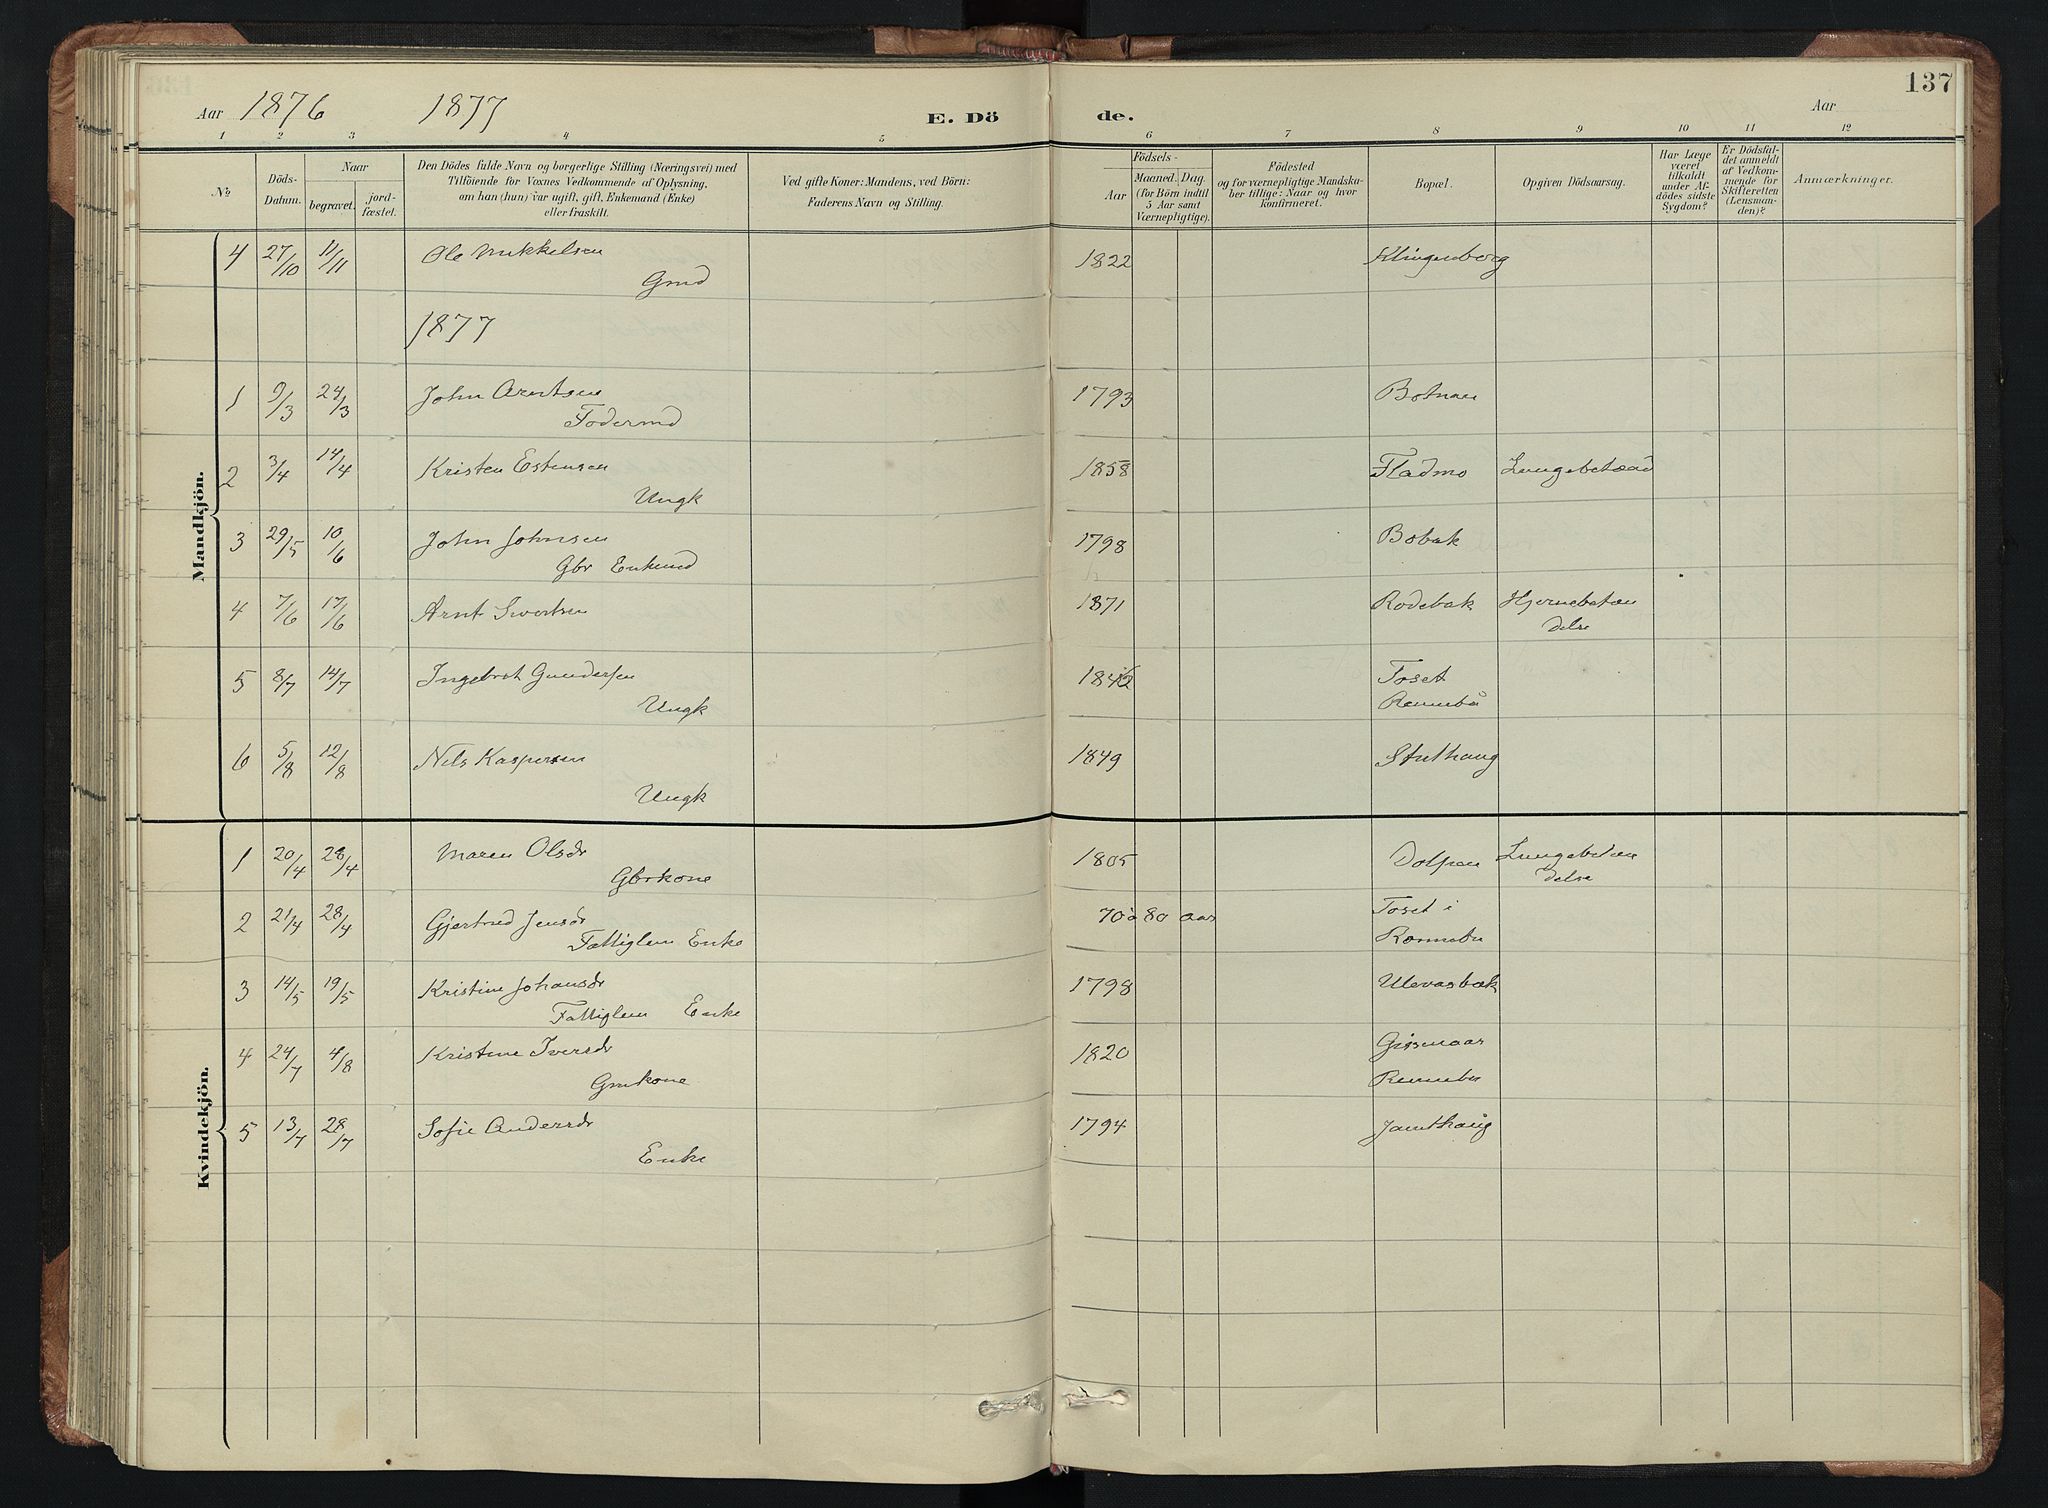 137
Aar 1876 1877 E. Dö de. Aar
1 2 3 4 5 6 7 8 9 10 11 12
No
Döds-
Datum.
Naar
begravet.
jord-
fæstet.
Den Dödes fulde Navn og borgerlige Stilling (Næringsvei) med
Tilföiende for Voxnes Vedkommende af Oplysning,
om han (hun) var ugift, gift, Enkemand (Enke)
eller fraskilt.
Ved gifte Koner: Mandens, ved Börn:
Faderens Navn og Stilling.
Födsels-
Aar
Maaned. Dag.
(for Börn indtil
5 Aar samt
Værnepligtige).
Födested
og for værnepligtige Mandska-
ber tillige: Naar og hvor
konfirmeret.
Bopæl.
Opgiven Dödsaarsag.
Har Læge
været
tilkaldt
under Af-
dödes sidste
Sygdom?
Er Dödsfal-
det anmeldt
af Vedkom-
mende for
Skifteretten
(Lensman-
den)?
Anmærkninger.
Mandkjön.
4 27/10 11/11 Ole Mikkelsen 1822 Klingenberg
Gmd
1877
1 9/3 24/3 John Arntsen 1793 Botnan
Fodermd
2 3/4 14/4 Kristen Estensen 1858 Fladmo
Ungk
3 29/5 10/6 John Johnsen 1798 Bobak
Gbr Enkemd
4 7/6 17/6 Arnt Sivertsen 1871 Rodebak Hjernebetæn
delse
5 8/7 14/7 Ingebrt Gundersen Toset
Ungk Rennebu
6 5/8 12/8 Nils Kaspersen 1849 Stuthaug
Ungk
Kvindekjön.
1 20/4 28/4 Maren Olsdr 1805 Lungebetæn
Gbrkone delse
2 21/4 28/4 Gjertrud Jensdr 70 à 80 aar Toset i
Fattiglem Enke Rennebu
3 14/5 19/5 Kristine Johansdr 1798 Ulevasbæk
Fattiglem Enke
4 24/7 4/8 Kristine Iversdr 1820 Gissenaas
Gmkone Rennebu
5 13/7 28/7 Sofie Andersdr 1794 Jamthaug
Enke